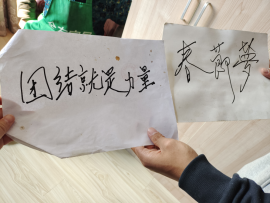 团结就是力量
春节梦